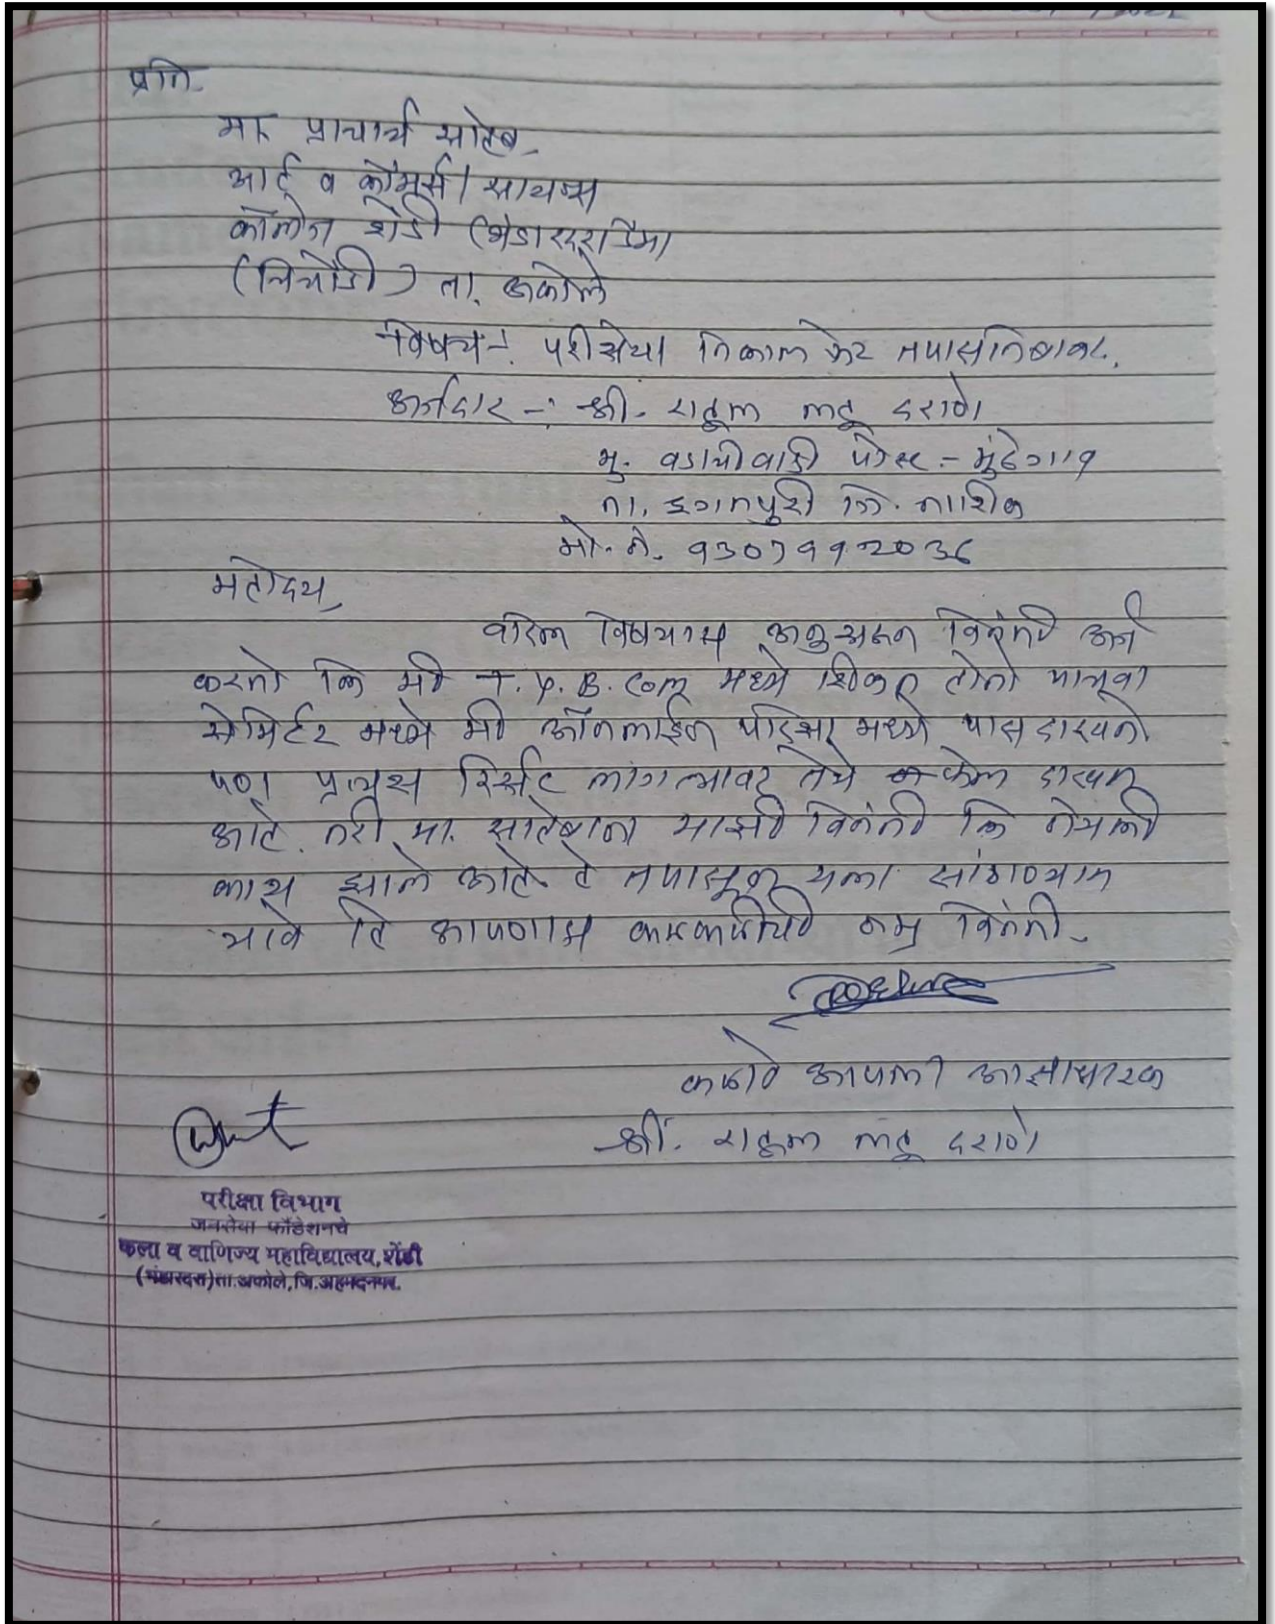 प्रति-
मा. प्राचार्य साहेब-
आर्ट व कॉमर्स / सायन्स
कॉलेज शेंडी (भंडारदरा डॅम)
(चिचोंडी) ता. अकोले
विषय :- परीक्षेचा निकाल फेर तपासनिबाबत.
अर्जदार -: श्री. राहूल लहू दराणे
मु. वडाचीवाडी पोस्ट :- मुंढेगाव
ता. इगतपुरी जि. नाशिक
मो. नं. ९३०७९९२०३६
महोदय,
वरिल विषयास अनुसरून विनंती अर्ज
करतो कि मी T.Y.B.Com मध्ये शिकत होतो पाचवा
सेमिस्टर मध्ये मी ऑनलाईन परिक्षा मध्ये पास दाखवतो
पण प्रत्यक्ष रिसॅल्ट लागल्यावर तेथे फेल दाखवत
आहे. तरी मा. साहेबांना माझी विनंती कि नेमकी
काय झाले आहे. ते तपासून मला सांगण्यात
यावे हि आपणास कळकळीची नम्र विनंती.
कळावे आपला आज्ञाधारक
श्री. राहूल लहू दराणे
परीक्षा विभाग
जनसेवा फौंडेशनचे
कला व वाणिज्य महाविद्यालय, शेंडी
(भंडारदरा) ता. अकोले, जि. अहमदनगर.